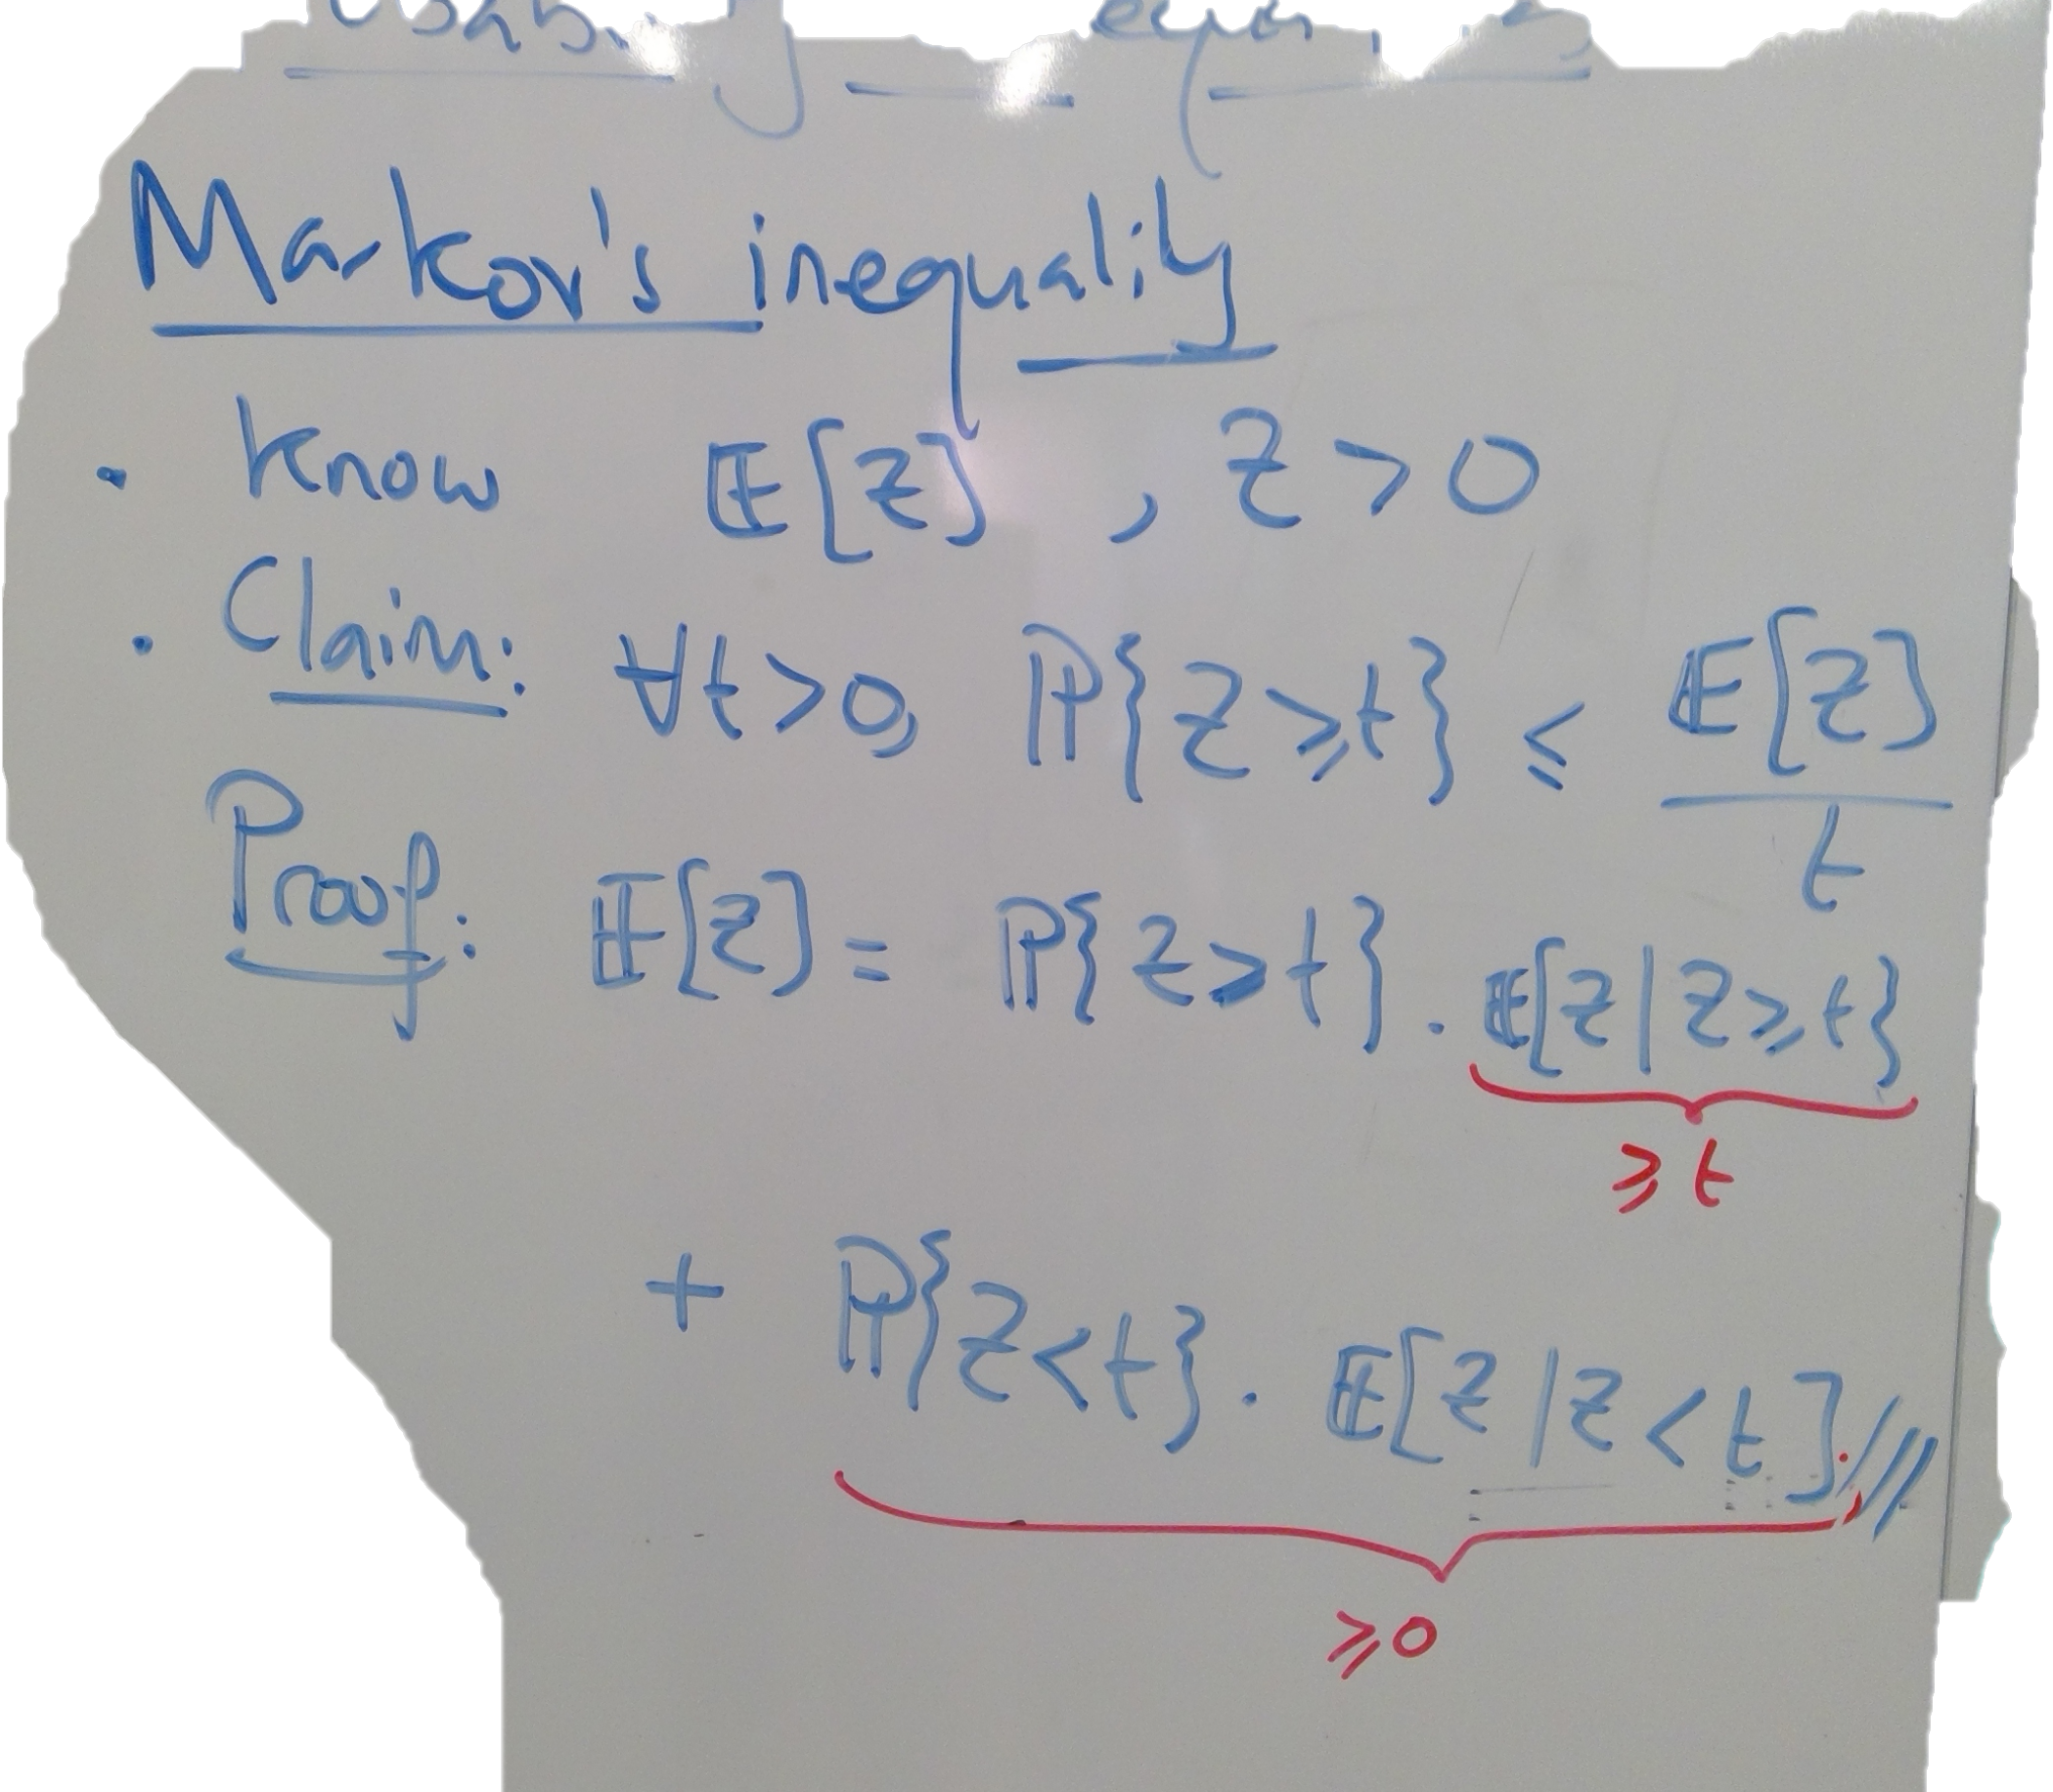 Markov's inequality
· Know 𝔼[Z] , Z > 0
· Claim: ∀t>0, ℙ{Z ⩾ t} ≤ 𝔼[Z] / t
Proof: 𝔼[Z] = ℙ{Z ⩾ t} . 𝔼[Z | Z ⩾ t}
⩾ t
+ ℙ{Z < t} . 𝔼[Z | Z < t] ///
⩾ 0